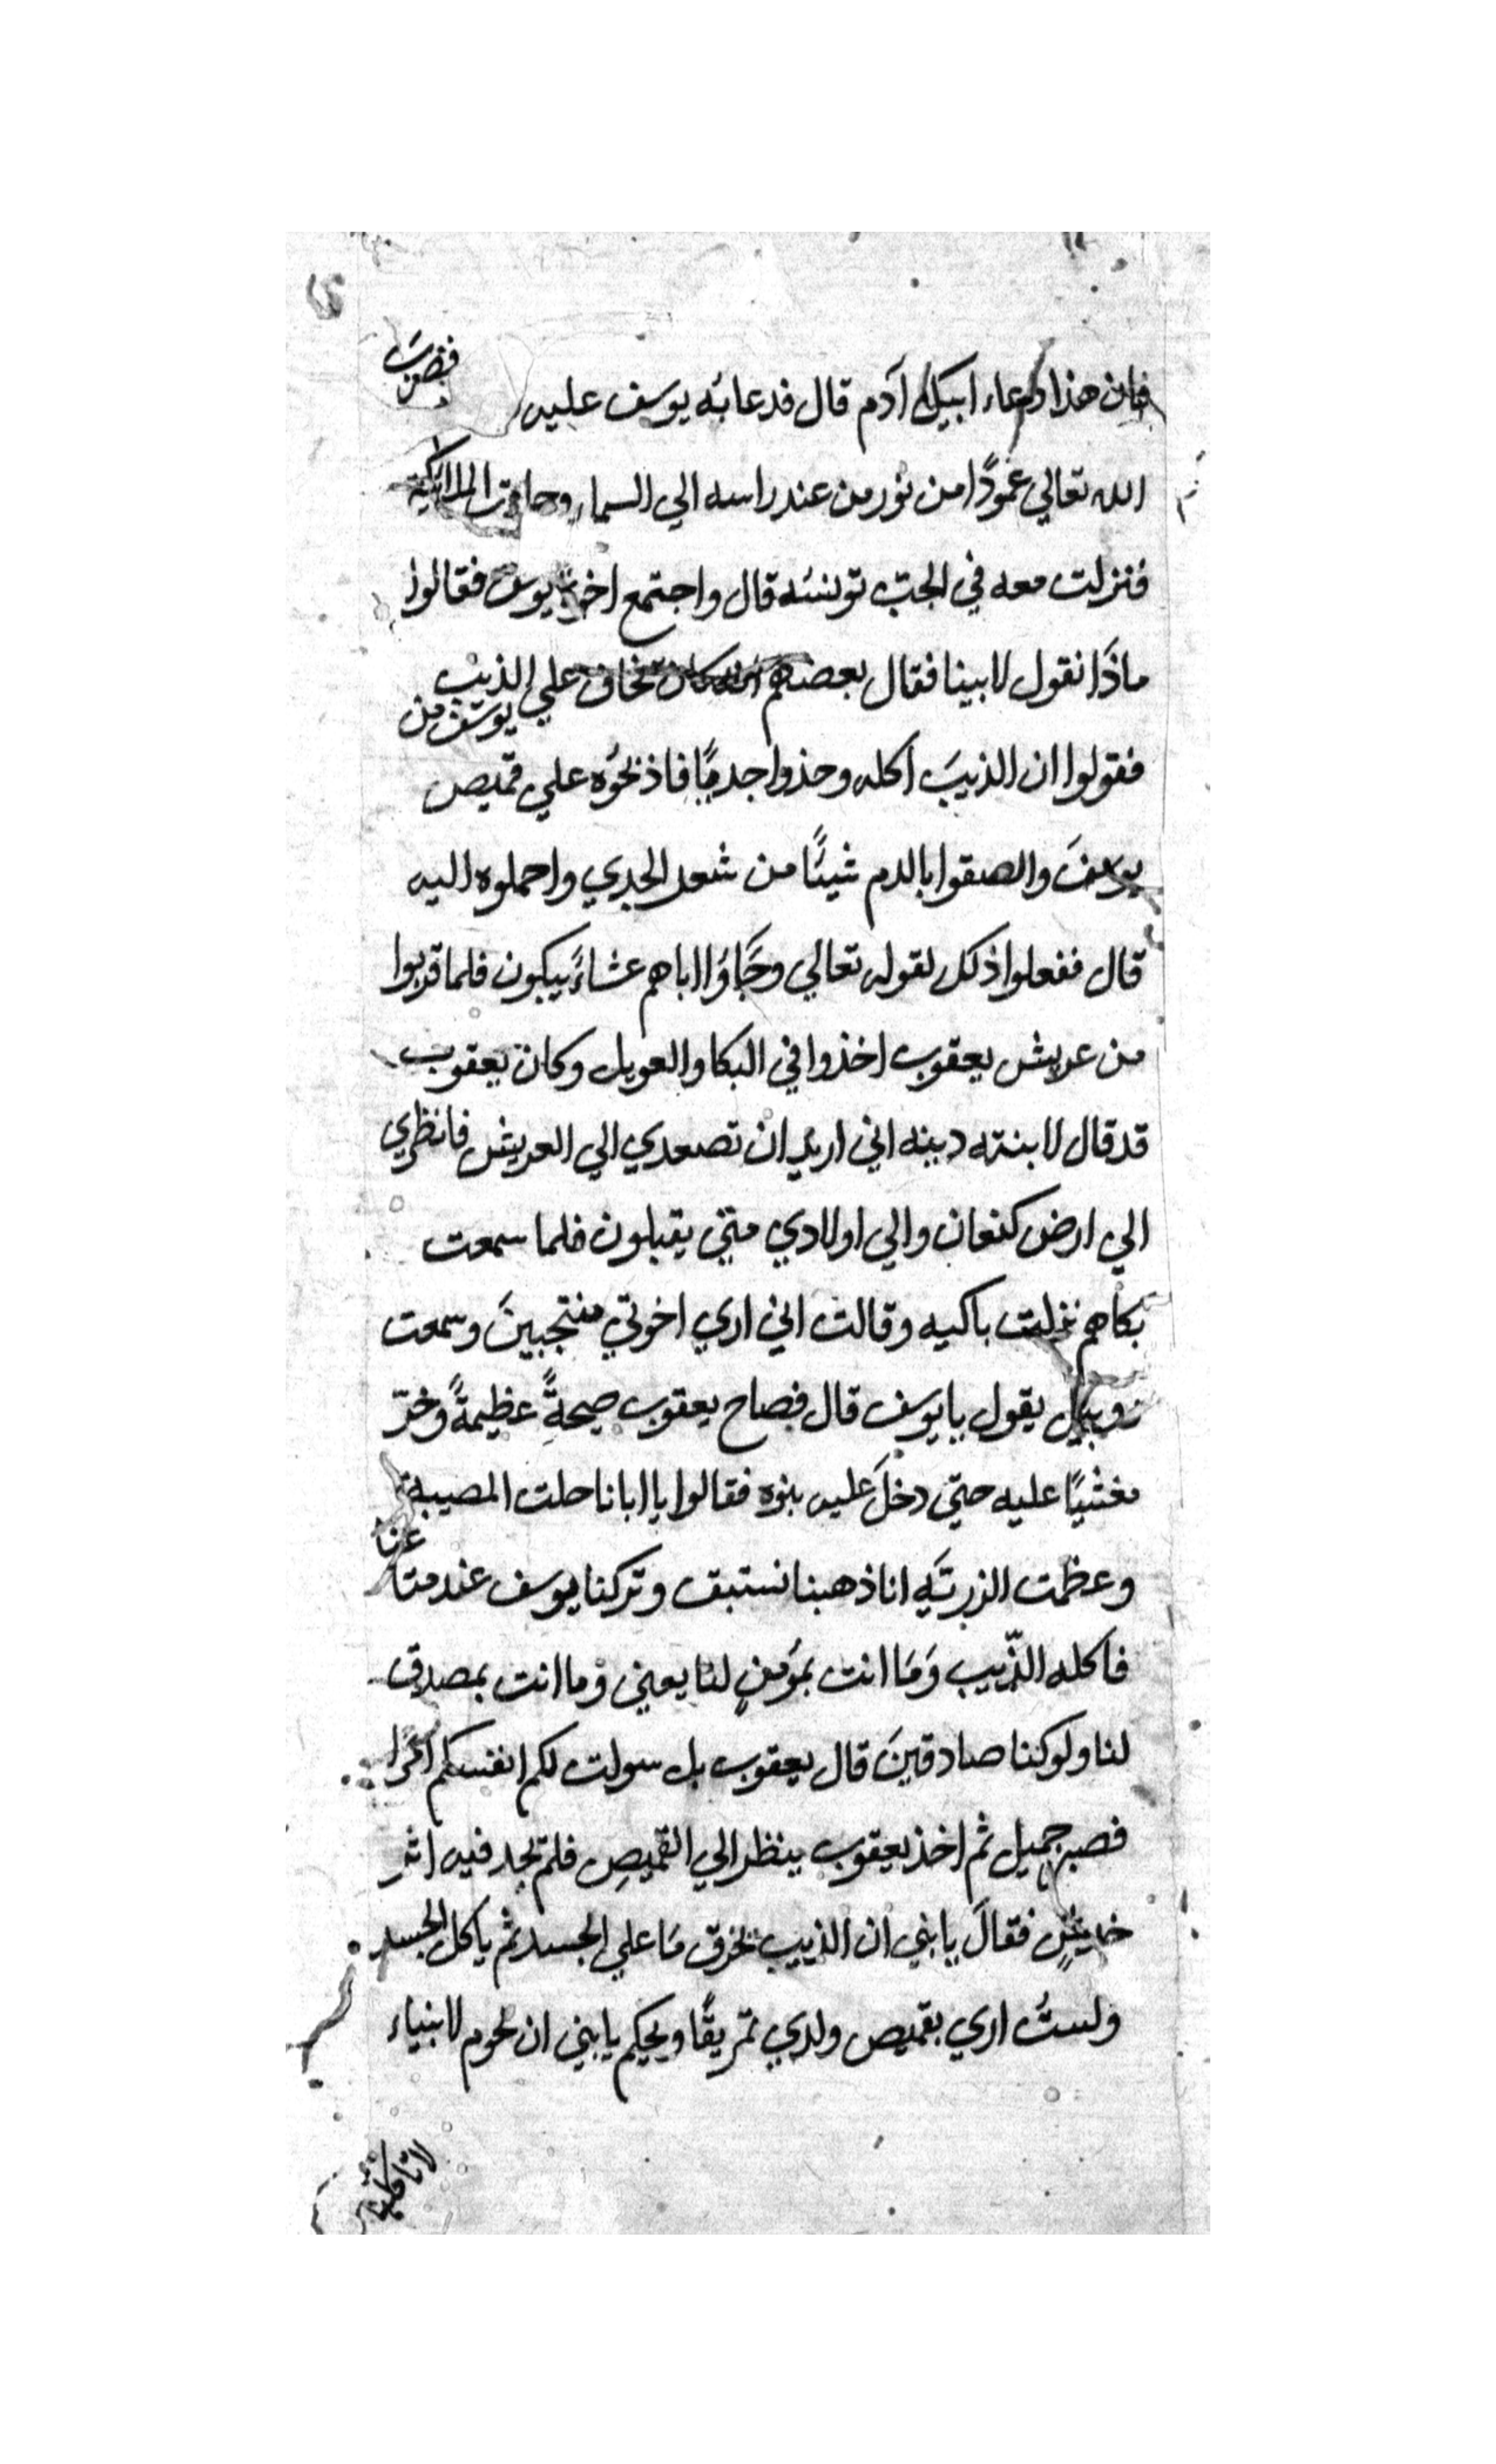 فان هذا دعاء ابيك آدم قال فدعا به يوسف عليه فضرب
الله تعالي عمودًا من نور من عند راسه الي السماء وحاءت الملائكة
فنزلت معه في الجبّ تونسه قال واجتمع اخوة يوسف فقالوا
ماذا نقول لابينا فقال بعضهم كان تخاف علي الذيب
يوسف من
فقولوا ان الذيبَ اكله وخذوا جديًا فاذبحُوه علي قميص
يوسفَ والصقوا بالدم شيئًا من شعر الجدي واحملوه اليه
قال ففعلوا ذلك لقوله تعالي وَجَاوُا اباهم عشاءً يبكون فلما قربوا
من عريش يعقوب اخذوا في البكا والعويل وكان يعقوب
قد قال لابنته دينه اني اريد ان تصعدي الي العريش فانظري
الي ارض كنعان والي اولادي متي يقبلون فلما سمعت
بكاهم نزلت باكيه وقالت اني اري اخوتي منتجبينَ وسمعت
روبيل يقول يا يوسف قال فصاح يعقوب صيحةً عظيمةً وخرّ
مغشيًا عليه حتي دخلَ عليه بنوه فقالوا يا ابانا حلت المصيبة
وعظمت الزريّه انا ذهبنا نستبق وتركنا يوسف عند متاعنا
فاكله الذّيب وَمَا انت بمؤمنٍ لنا يعني وما انت بمصدق
لنا ولو كنا صادقينَ قال يعقوب بل سولت لكم انفسكم امرًا
فصبر جميل ثم اخذ يعقوب ينظر الي القميصِ فلم يجد فيه اثر
خديشٍ فقالَ يا بني ان الذييب يخرق مَا علي الجسد ثم ياكل الجسد
ولستُ اري بقميص ولدي تمزيقًا ويحكم يا بني ان لحوم الانبياء
لا تاكله